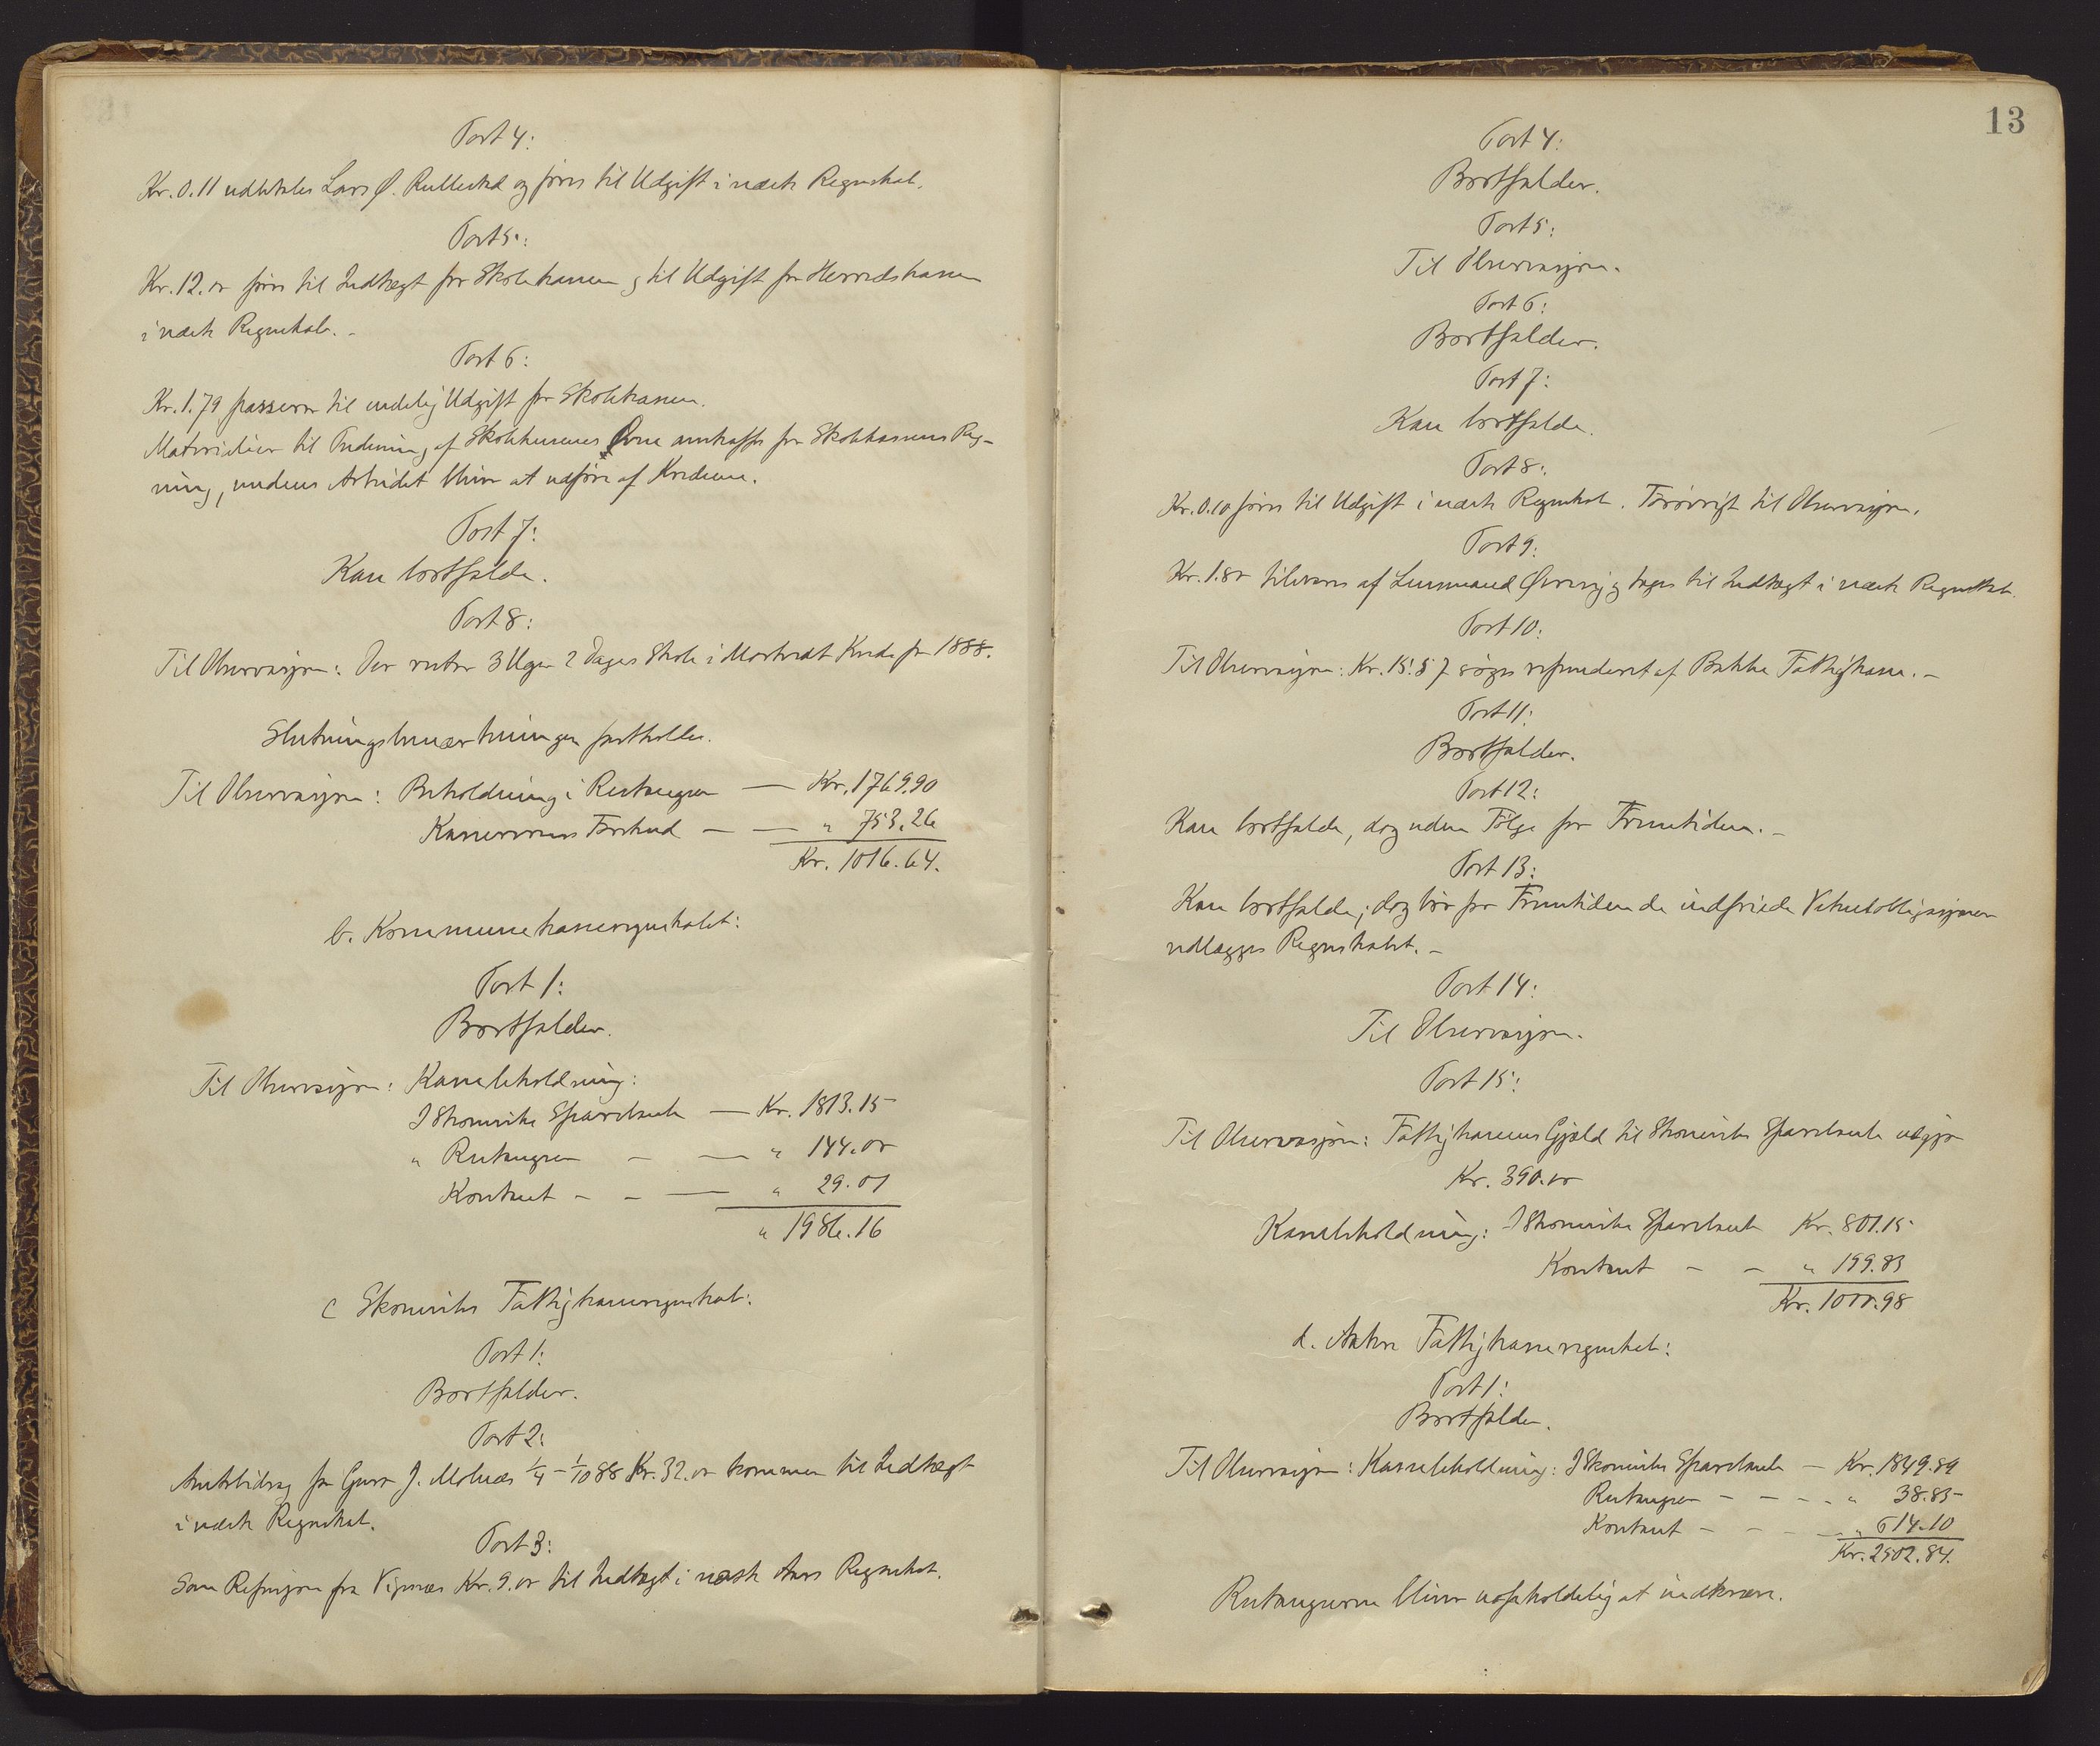 Post 4:
Kr. 0.11 udbetales Lars Ø. Rullestad og føres til Udgift i næste Regnskab.
Post 5:
Kr. 12.00 føres til Indtægt for Skolekassen og til Udgift for Herredskassen
i næste Regnskab. –
Post 6:
Kr. 1.79 passerer til endelig Udgift for Skolekassen.
Materialier til Tredning af Skolehusenes Ovne anskaffes for Skolekassens Reg-
ning, medens Arbeidet bliver at udføre af Kredsene.
Post 7:
Kan bortfalde.
Post 8:
Til Observasjon: Der rester 3 Uger 2 Dages Skole i Kreds for 1888.
Slutningsbemærkningen fastholdes.
Til Observasjon: Beholdning i Restanser — Kr. 1769.90
Kassererens Forskud — — " 753.26
Kr. 1016.64.
b. Kommunekasseregnskabet:
Post 1:
Bortfalder.
Til Observasjon: Kassebeholdning:
I Skoneviks Sparebank — Kr. 1813.15
" Restanser — — " 144.00
Kontant – – — " 29.01
" 1986.16
c Skoneviks Fattigkasseregnskab:
Post 1:
Bortfalder.
Post 2:
Amtsbidrag for J. Molnæs 1/4 – 1/10 88 Kr. 32.00 kommer til Indtægt
i næste Regnskab.
Post 3:
Som Refusjon fra Vignæs Kr. 9.00 til Indtægt i næste Aars Regnskab.
13
Post 4:
Bortfalder.
Post 5:
Til Observasjon.
Post 6:
Bortfalder.
Post 7:
Kan bortfalde.
Post 8:
Kr. 0.10 føres til Udgift i næste Regnskab. Forøvrigt til Observasjon.
Post 9:
Kr. 1.80 tilsvares af Lensmand Øvrevig og tages til Indtægt i næste Regnskab.
Post 10:
Til Observasjon: Kr. 15.57 søges refunderet af Bakke Fattigkasse. –
Post 11:
Bortfalder.
Post 12:
Kan bortfalde, dog uden Følge for Fremtiden. –
Post 13:
Kan bortfalde; dog bør for Fremtiden de indfriede Vekselobligasjoner
vedlægges Regnskabet. –
Post 14:
Til Observasjon.
Post 15:
Til Observasjon: Fattigkassens Gjæld til Skoneviks Sparebank udgjør
Kr. 390.00
Kassebeholdning: I Skoneviks Sparebank Kr. 801.15
Kontant – – " 199.83
Kr. 1000.98
d. Aakre Fattigkasseregnskab:
Post 1:
Bortfalder.
Til Observasjon: Kassebeholdning: I Skoneviks Sparebank — Kr. 1849.89
Restanser – – – " 38.85
Kontant – – – " 614.10
Kr. 2502.84.
Restanserne bliver uopholdelig at inddrive.